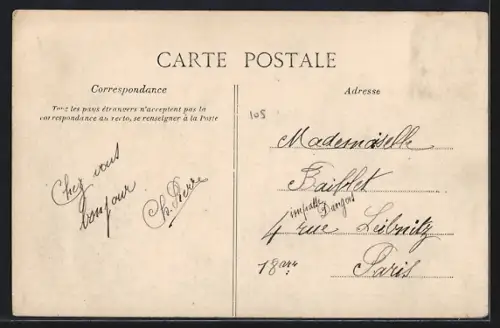 CARTE POSTALE
Correspondance
Tous les pays étrangers n'acceptent pas la
correspondance au recto, se renseigner à la Poste
Chez vous
bonjour
Ch. Pierre
Adresse
105
Mademoiselle
impasse Dangers
4 rue Leibnitz
18arr
Paris